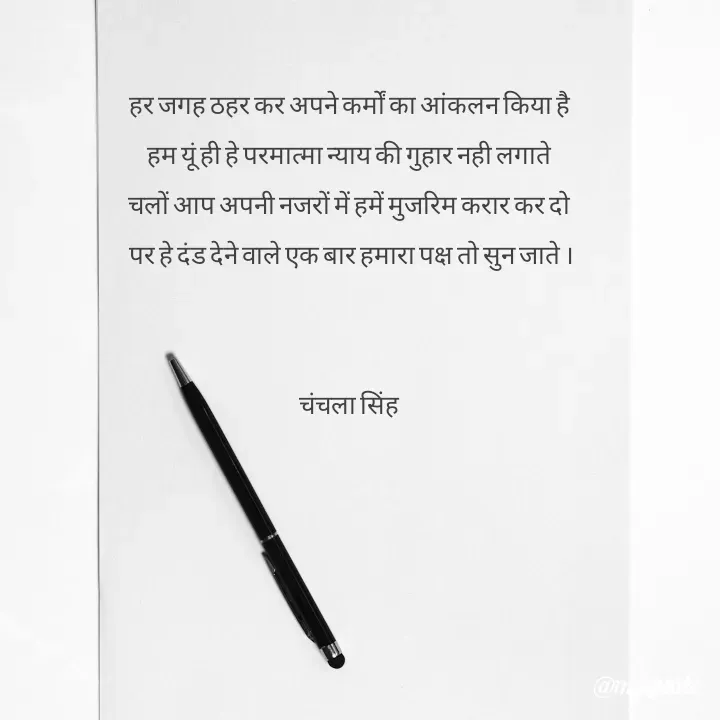 हर जगह ठहर कर अपने कर्मों का आंकलन किया है
हम यूं ही हे परमात्मा न्याय की गुहार नही लगाते
चलों आप अपनी नजरों में हमें मुजरिम करार कर दो
पर हे दंड देने वाले एक बार हमारा पक्ष तो सुन जाते ।
चंचला सिंह